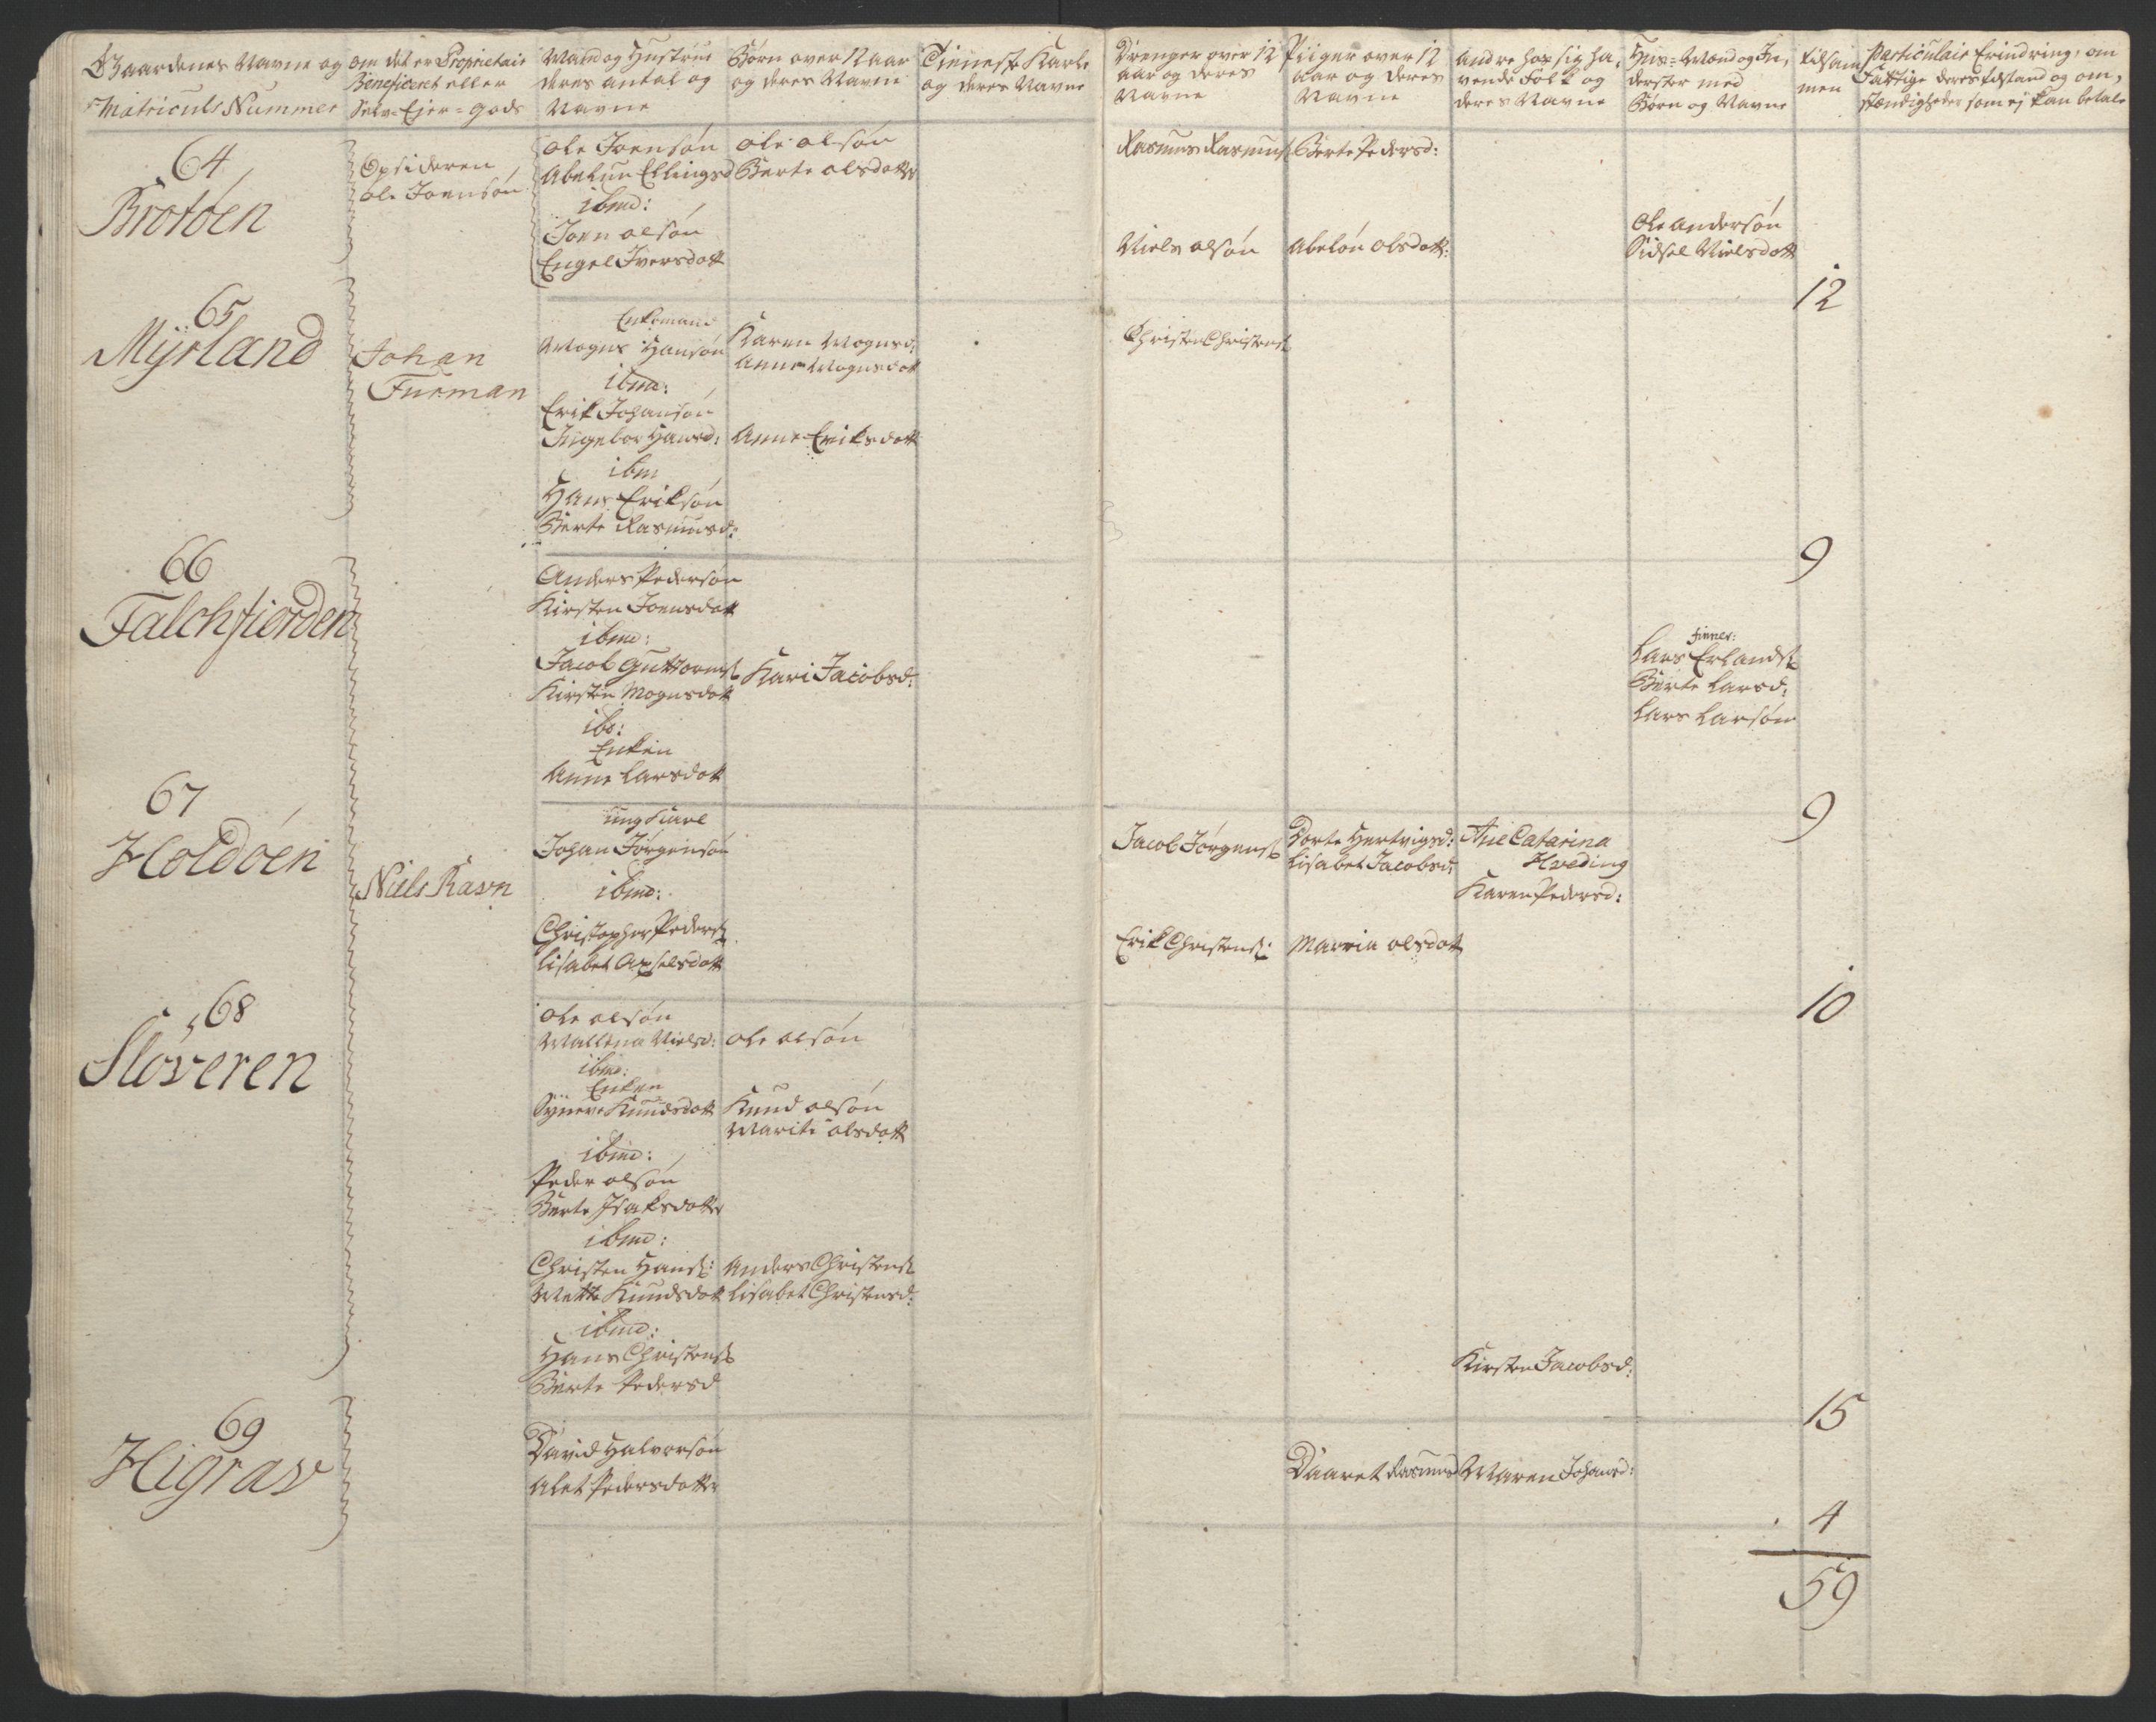 Gaardenes Navne og
Matriculs Nummer
om det er Proprietair
Beneficeret eller
Selv-Ejer-gods
Mand og Hustrue
deres antal og
Navne
Børn over 12 aar
og deres Navne
Tieneste Karle
og deres Navne
Drenger over 12
aar og deres
Navne
Piiger over 12
aar og deres
Navne
Andre hos sig ha-
vende Folk og
deres Navne
Huus-Mænd og In-
derster med
Børn og Navne
tilsam
men
Particulair Erindring, om
Fattige deres tilstand og om-
stændigheder som ej kan betale
64
Brotøen
Opsideren
Ole Joensøn
Ole Joensøn
Abelun Ellingsd
ibmd:
Joen Olsøn
Engel Iversdatt
Ole Olsøn
Berte Olsdatter
Rasmus Rasmus
Niels Olsøn
Berte Pedersd:
Abelon Olsdatt:
Ole Andersøn
Sidsel Nielsdatt
12
65
Myrland
Johan
Furman
Enkemand
Mogns Hansøn
ibmd:
Erik Johansøn
Ingebor Hansd:
ibm
Hans Eriksøn
Berte Rasmusd:
Karen Mognsd:
Anne Mognsdatt
Anne Eriksdatt
Christen Christens
9
66
Falchfiorden
Anders Pedersøn
Kirsten Joensdatt
ibmd:
Jacob Guttorms
Kirsten Mognsdatt
ibd:
Enken
Anne Larsdatt
Kari Jacobsd:
finner:
Lars Erlands
Berte Larsd:
Lars Larsøn
9
67
Holdøen
Niels Ravn
ung Karl
Johan Jørgensøn
ibmd:
Christopher Peders
Lisabet Axselsdatt
Jacob Jørgens
Erik Christens:
Dorte Hertvigsd:
Lisabet Jacobsd:
Marria Olsdatt
Ane Catarina
Hveding
Karen Pedersd:
10
68
Sløveren
Ole Olsøn
Mallena Nielsd:
ibmd:
Enken
Syneve Knudsdatt
ibmd:
Peder Olsøn
Berte Isaksdatter
ibmd:
Christen Hans:
Mette Knudsdatt
ibmd:
Hans Christens
Berte Pedersd
Ole Olsøn
Knud Olsøn
Marite Olsdatt
Anders Christens
Lisabet Christensd:
Kirsten Jacobsd:
15
69
Higrav
David Halvorsøn
Alet Pedersdatter
Daaret Rasmusd
Maren Johansd:
4
59